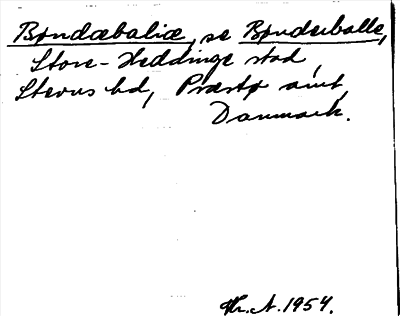 Bøndæbaliæ, se Bønderballe,
Store-Heddinge stad,
Stevns hd, Præstø amt,
Danmark.
Hr. A. 1954.